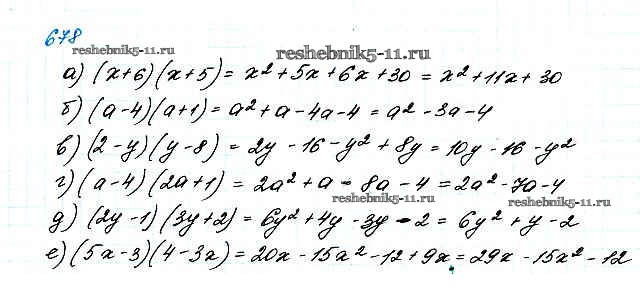 678
reshebnik5-11.ru
reshebnik5-11.ru
а) (x+6)(x+5) = x²+5x+6x+30 = x²+11x+30
б) (a-4)(a+1) = a²+a-4a-4 = a²-3a-4
в) (2-y)(y-8) = 2y-16-y²+8y = 10y-16-y²
г) (a-4)(2a+1) = 2a²+a-8a-4 = 2a²-7a-4
reshebnik5-11.ru
д) (2y-1)(3y+2) = 6y²+4y-3y-2 = 6y²+y-2
е) (5x-3)(4-3x) = 20x-15x²-12+9x = 29x-15x²-12